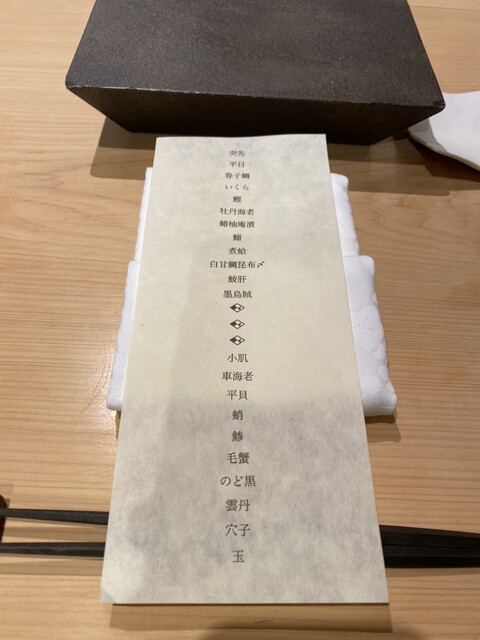 突先
平目
春子鯛
いくら
鰹
牡丹海老
鰆柚庵漬
鰯
煮蛤
白甘鯛昆布〆
鮟肝
墨烏賊
小肌
車海老
平貝
蛸
鯵
毛蟹
のど黒
雲丹
穴子
玉